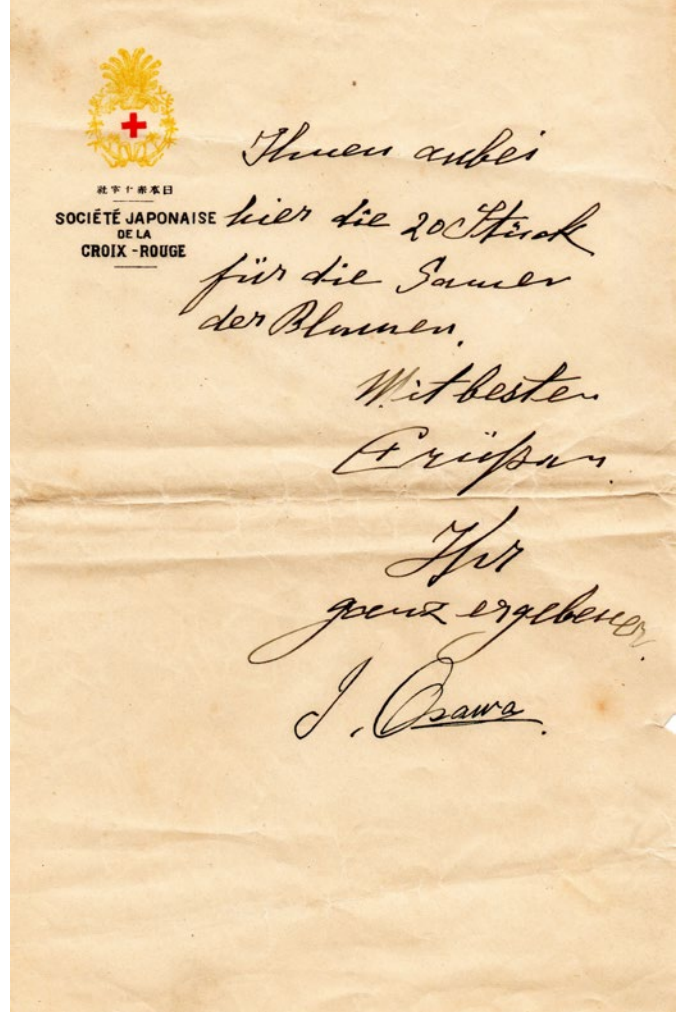 社字十赤本日
SOCIÉTÉ JAPONAISE
DE LA
CROIX-ROUGE
Ihnen anbei
hier die 20 Stück
für die Samen
der Blumen.
Mit besten
Grüßen
Ihr
ganz ergebener
J. Osawa.